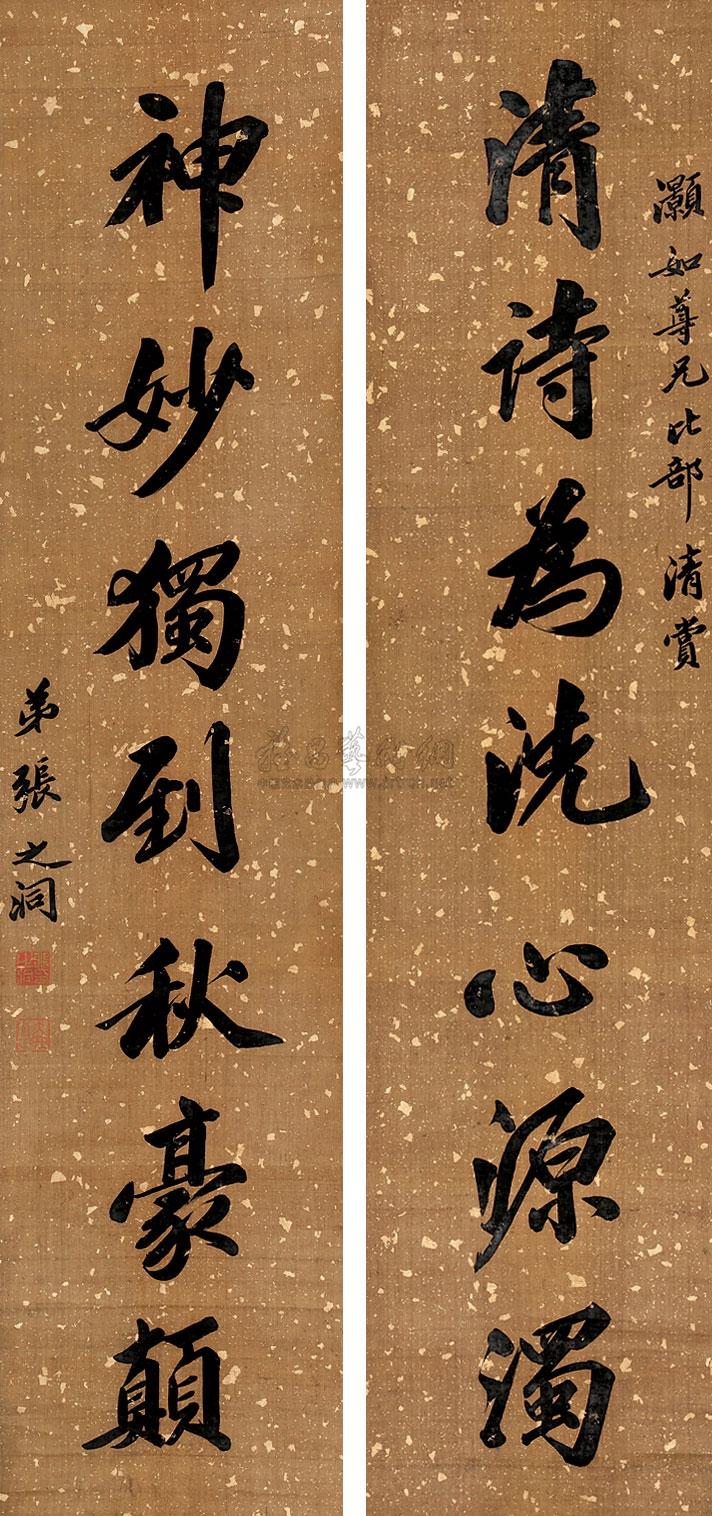 灝如尊兄比部清賞
清詩為洗心源濁
神妙獨到秋豪顛
弟張之洞